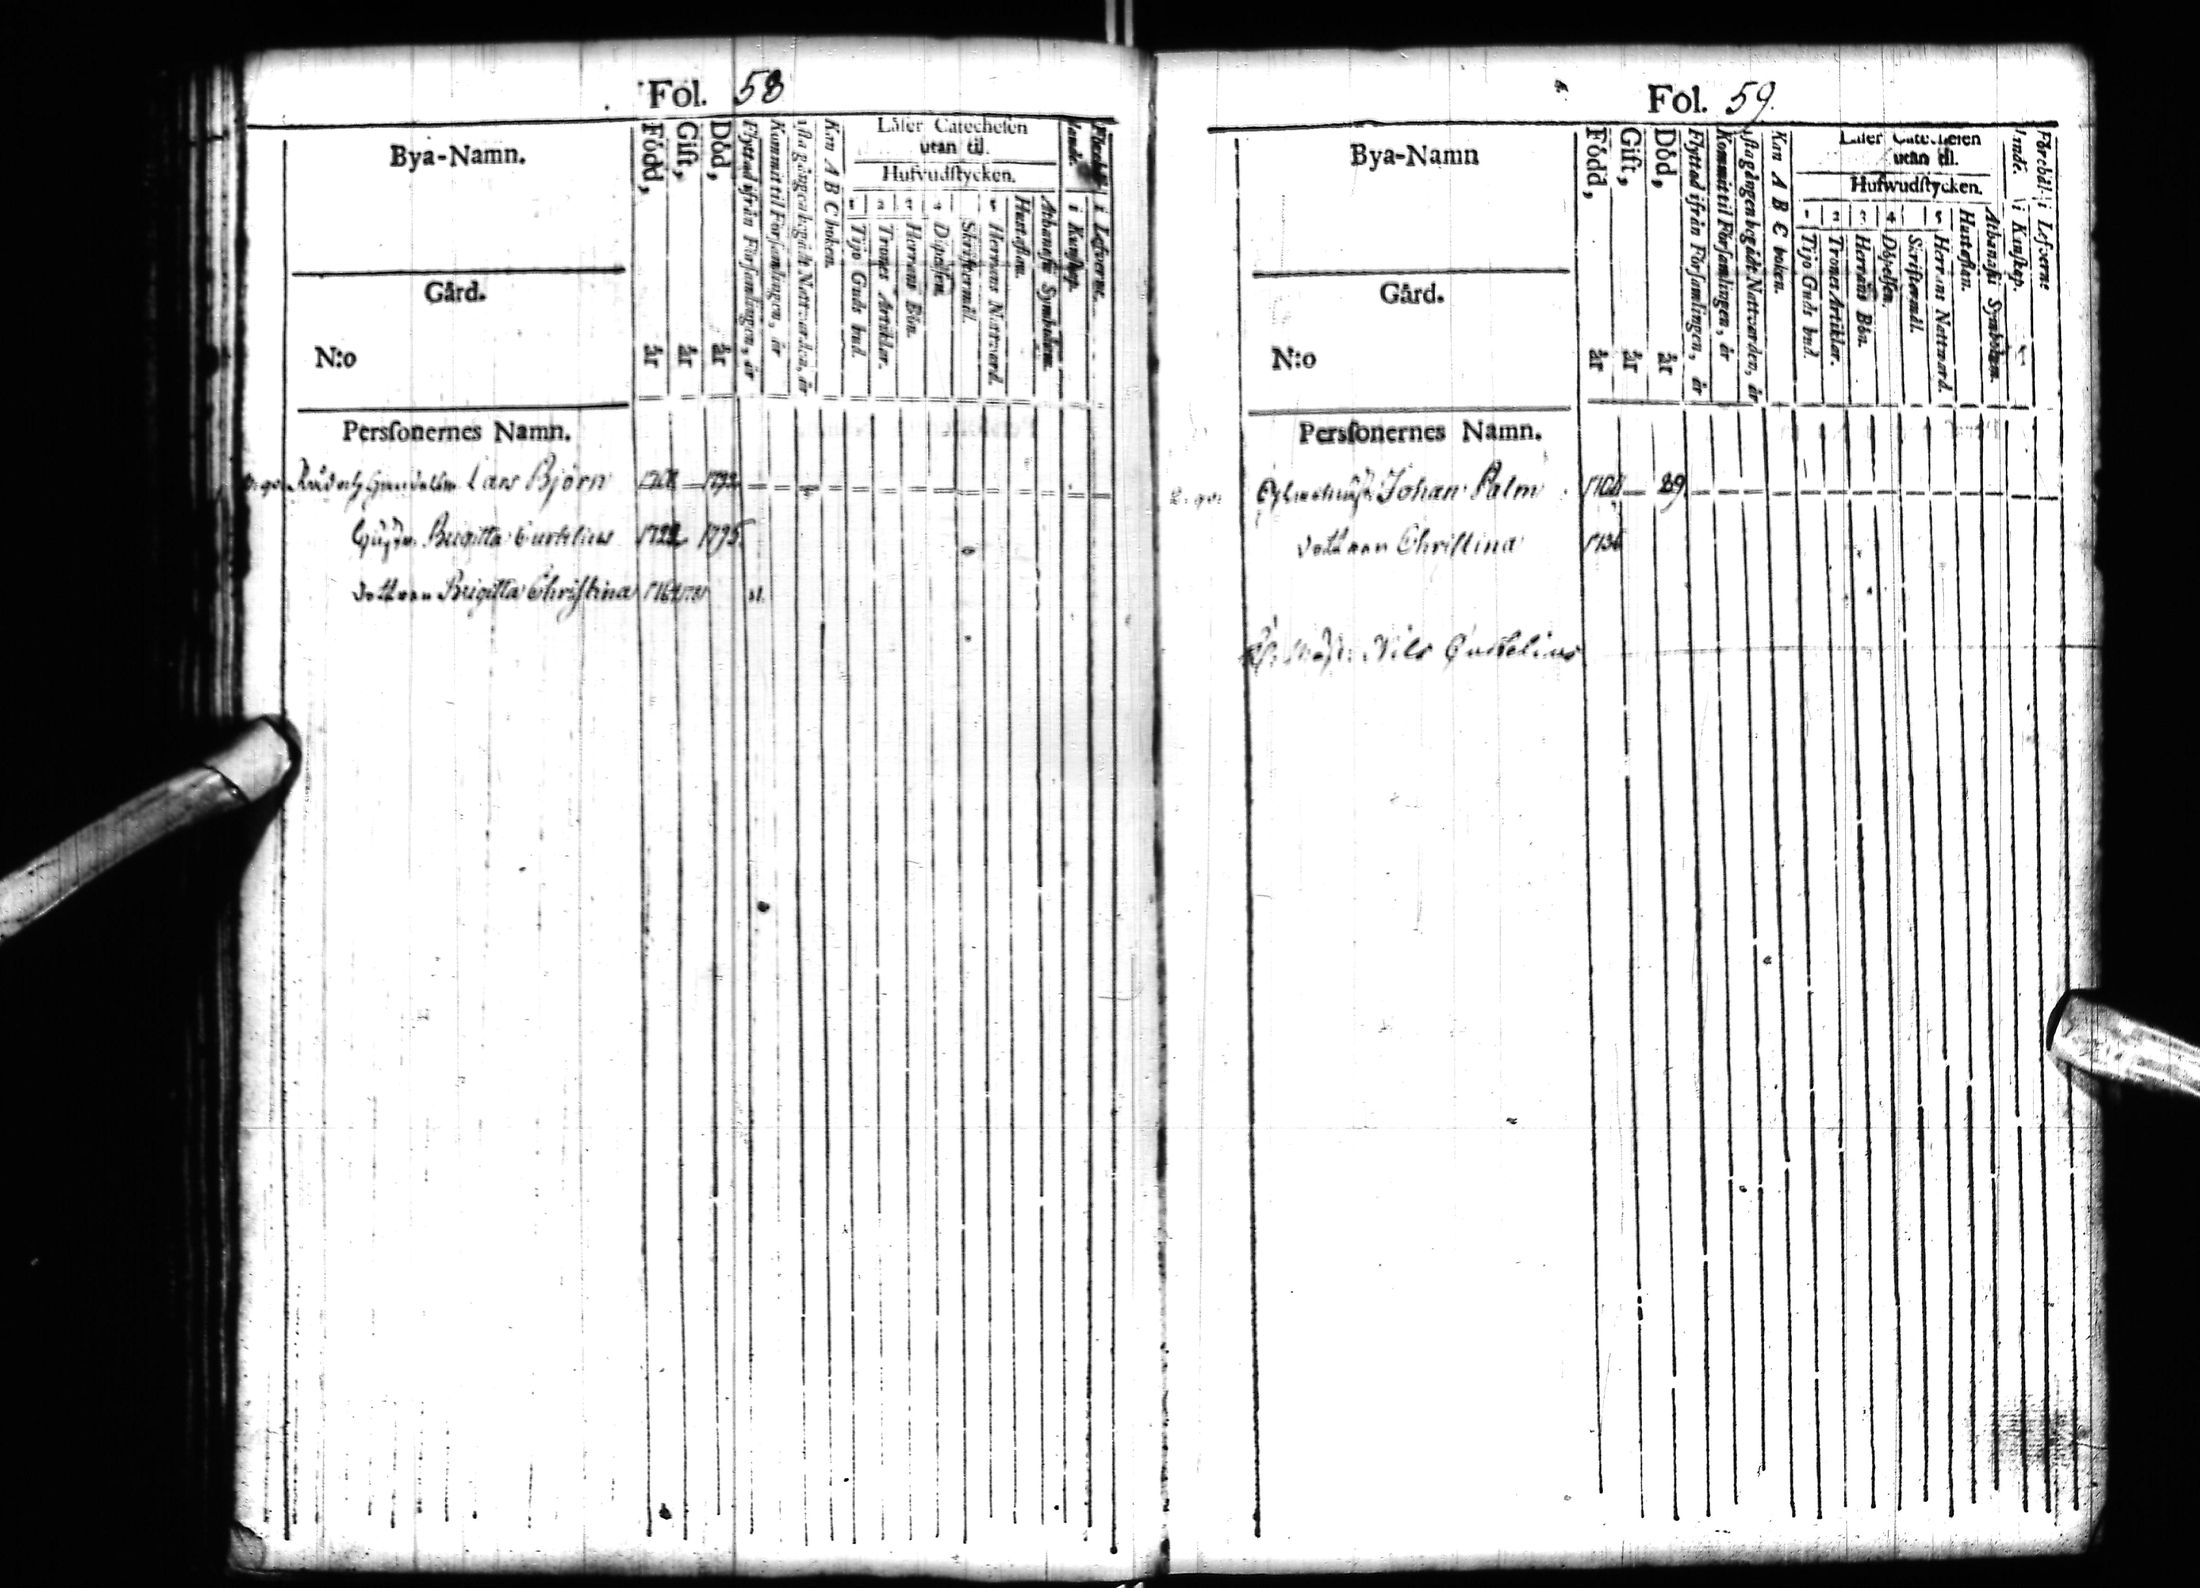 Fol. 58
Bya-Namn.
Gård.
N:o
Persſonernes Namn.
Född, år
Gift, år
Död, år
Flyttad ifrån Förſamlingen, år
Kommit til Förſamlingen, år
1ſta gången begådt Nattvarden, år
Kan A B C boken.
Läſer Catecheſen
utan til.
Hufvudſtycken.
1 Tijo Guds bud.
2 Trones Artiklar.
3 Herrans Bön.
4 Döpelſen.
Skriftermål.
5 Herrans Nattvard.
Huſtaflan.
Athanaſii Symbolum.
i Kunſkap.
i Lefverne.
Lars Björn 1792
Huſtr. Brigitta Curtelius 1722 1795
dottren Brigitta Christina 1764
Fol. 59.
Bya-Namn
Gård.
N:o
Persſonernes Namn.
Född, år
Gift, år
Död, år
Flyttad ifrån Förſamlingen, år
Kommit til Förſamlingen, år
1ſta gången begådt Nattvarden, år
Kan A B C boken.
Läſer Catecheſen
utan til.
Hufwudſtycken.
1 Tijo Guds bud.
2 Trones Artiklar.
3 Herrans Bön.
4 Döpelſen.
Skriftermål.
5 Herrans Nattvard.
Huſtaflan.
Athanaſii Symbolum.
i Kunſkap.
Förehål- i Lefverne
Johan Palm 89
dottren Christina 1736
Nils Curtelius